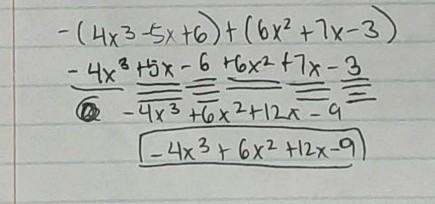 -(4x3-5x+6)+(6x²+7x-3)
-4x³+5x-6+6x²+7x-3
-4x³+6x²+12x-9
-4x³+6x²+12x-9